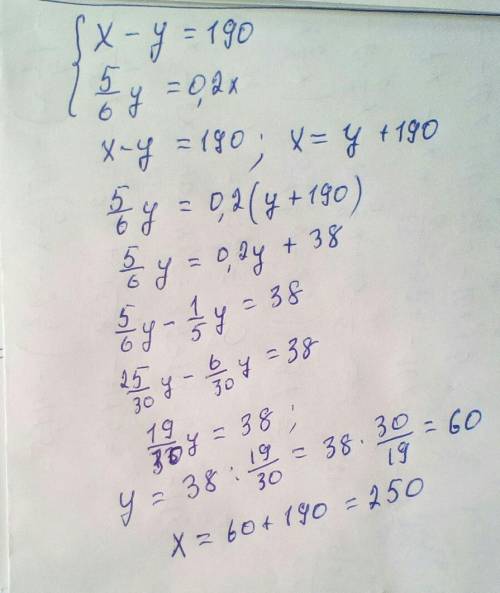 { x - y = 190
5/6 y = 0,2x
x-y = 190; x = y + 190
5/6 y = 0,2(y + 190)
5/6 y = 0,2y + 38
5/6 y - 1/5 y = 38
25/30 y - 6/30 y = 38
19/30 y = 38;
y = 38 : 19/30 = 38 · 30/19 = 60
x = 60 + 190 = 250